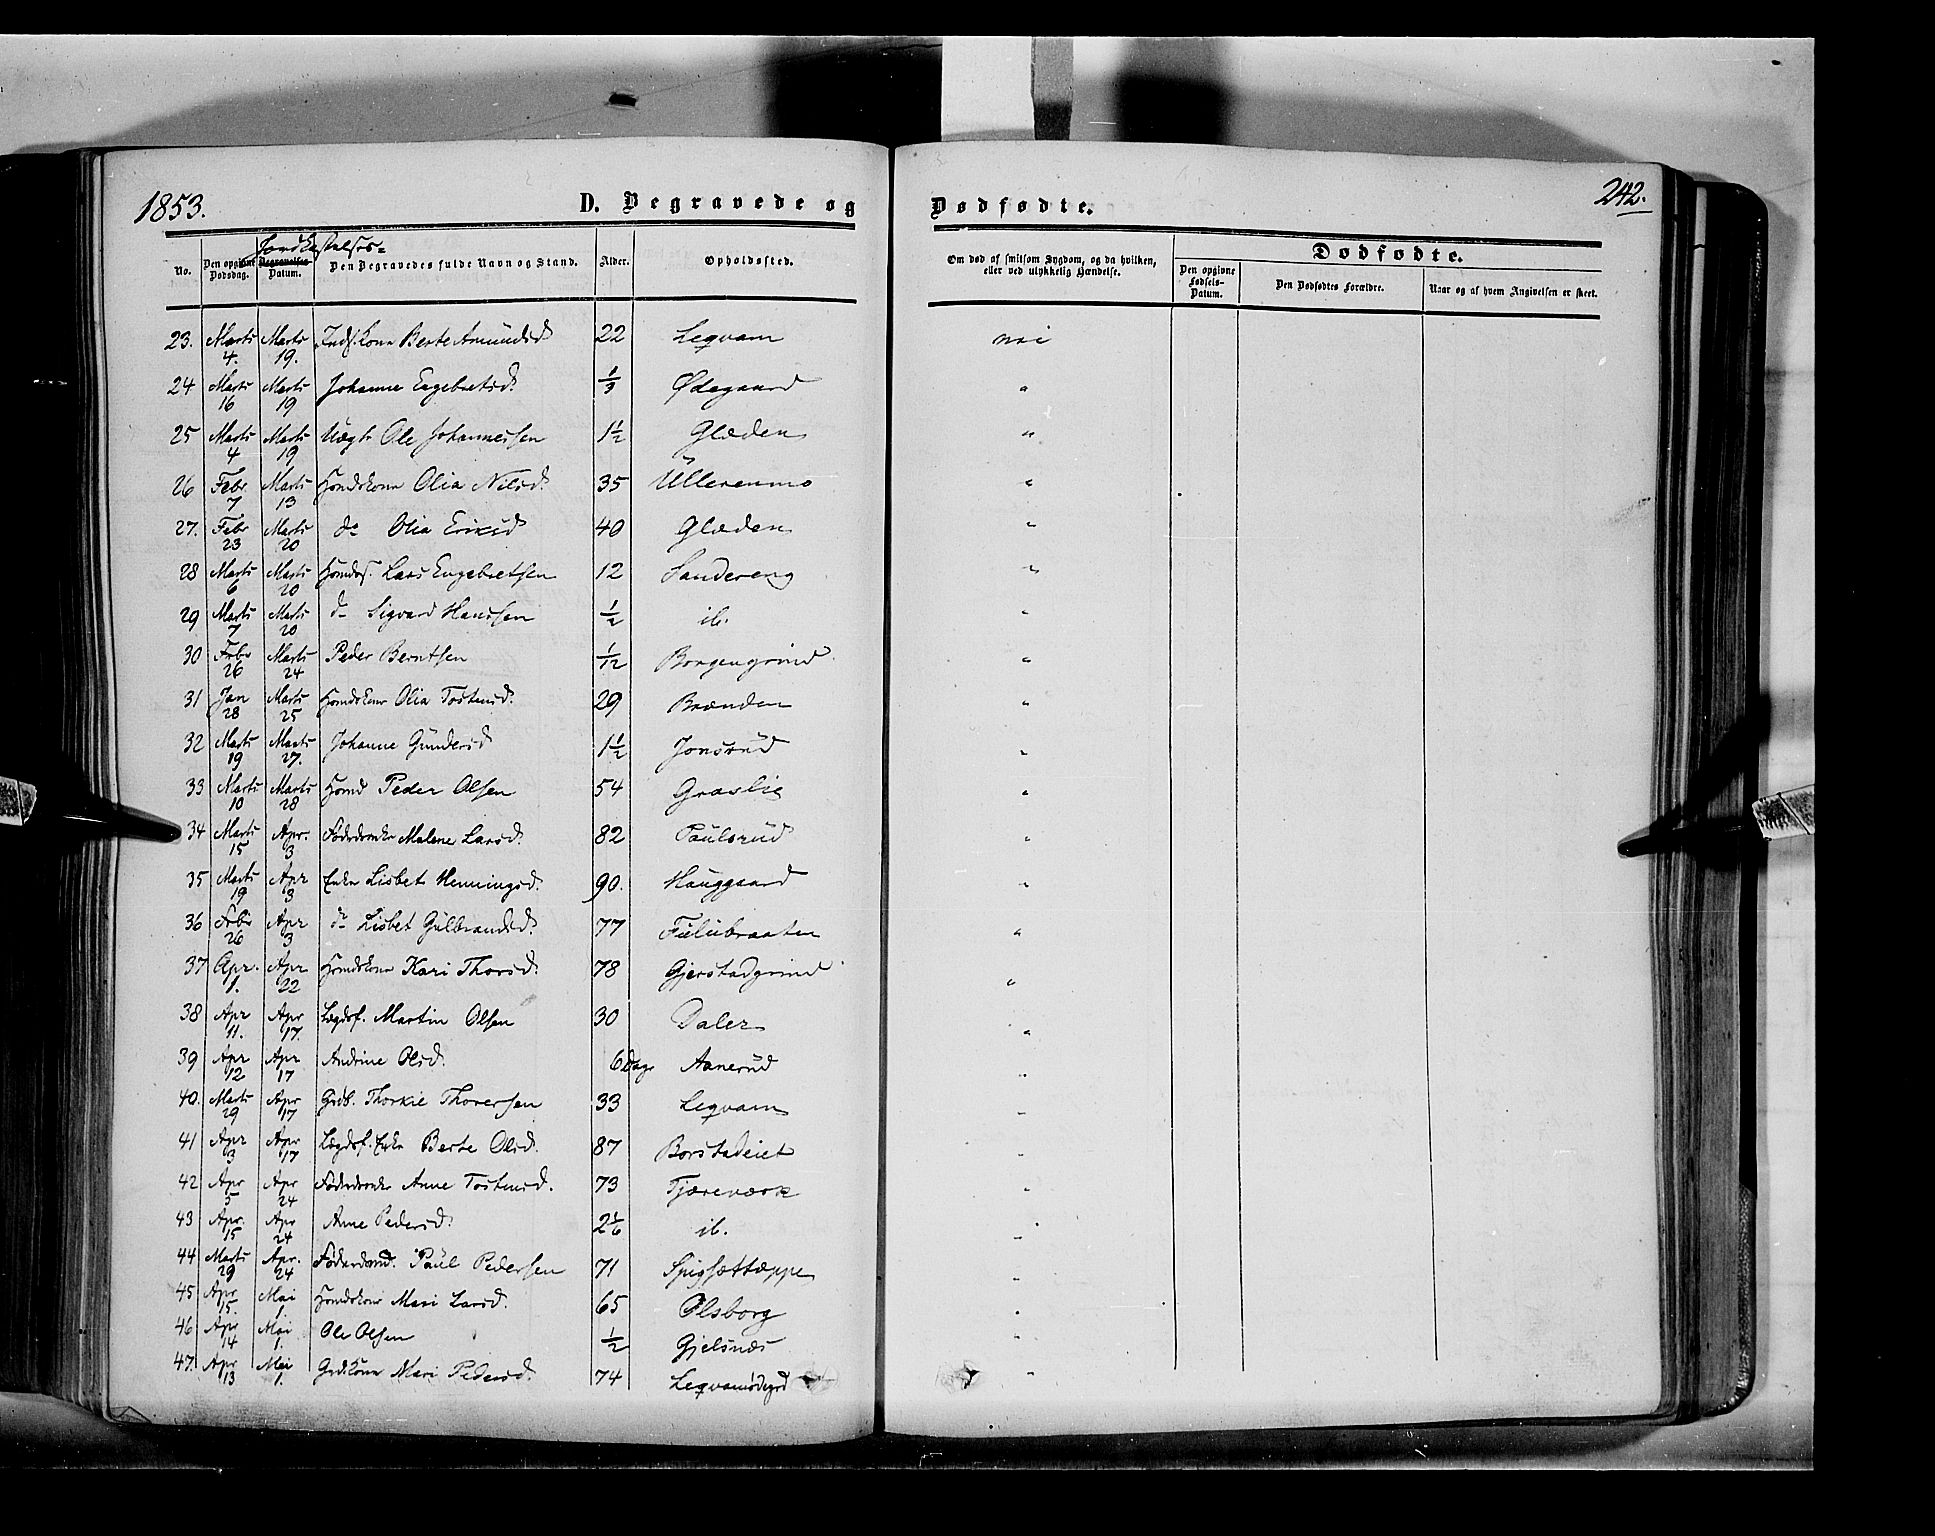 1853.
D. Begravede og Dødfødte.
242.
Jordkastelses=
No.
Den opgivne Dødsdag.
Begravelses Datum.
Den Begravedes fulde Navn og Stand.
Alder.
Opholdssted.
Om død af smitsom Sygdom, og da hvilken, eller ved ulykkelig Hændelse.
Dødfødte.
Den opgivne Fødsels-Datum.
Den Dødfødtes Forældre.
Naar og af hvem Angivelsen er skeet.
23. Marts 4. Marts 19. Inds. Kone Berte Amundsd 22 Leqvam nei
24 Marts 16 Marts 19 Johanne Engebretsd. 1/3 Ødegaard "
25 Marts 4 Marts 19 Uægte Ole Johannessen 1 1/2 Glæden "
26 Febr 7 Marts 13 Hmdskone Olia Nilsd. 35 Ullerenmo "
27. Febr 23 Marts 20 do Olia Eriksd 40 Glæden "
28 Marts 6 Marts 20 Hmds. Lars Engebretsen 12 Sandereng "
29 Marts 7 Marts 20 do Sigvard Hanssen 1/2 ib. "
30 Febr 26 Marts 24 Peder Berntsen 1/12 Borgengrind "
31 Jan 28 Marts 25 Hmdskone Olia Tostensd. 29 Brænden "
32 Marts 19 Marts 27. Johanne Gundersd 1 1/2 Jonsrud "
33 Marts 10 Marts 28 Hmd Peder Olsen 54 Graslie "
34 Marts 15 Apr. 3 Føderdenke Malene Larsd. 82 Paulsrud "
35 Marts 19 Apr 3 Enke Lisbet Henningsd. 90. Hauggaard "
36 Febr 26 Apr 3 do Lisbet Gulbrandsd. 77 "
37 Apr. 1. Apr 22 Hmdskone Kari Thorsd. 78 Gjerstadgrind "
38 Apr 11. Apr 17. Lægdsf. Martin Olsen 30 Daler "
39 Apr 12 Apr 17 Andrine Olsd. 6 Dage Aanerud "
40. Marts 29 Apr 17 Grdb. Thorkie Thorersen 33 Leqvam "
41 Apr 3 Apr 17 Lægdsf. Enke Berte Olsd. 87 Borstadeiet "
42 Apr 5 Apr 24 Føderdenke Anne Tostensd. 73 Tjæreværk "
43 Apr. 15 Apr 24 Anne Pedersd. 2 1/6 ib. "
44 Marts 29 Apr. 24 Føderdmd. Paul Pedersen 71 Spigsættæppe "
45 Apr 15. Mai 1. Hmdskone Mari Larsd. 65 Olsborg "
46 Apr 14 Mai 1. Ole Olsen 1/2 Gjelsnæs "
47. Apr 13 Mai 1. Grdkone Mari Pedersd. 74 Leqvamødegrd "